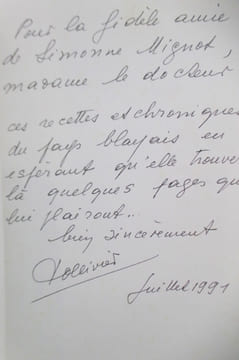 Pour la fidèle amie
de Simonne Mignot,
madame le docteur
ces recettes et chroniques
du pays blayais en
espérant qu'elle trouve
là quelques pages qui
lui plairont..
bien sincèrement
Juillet 1991